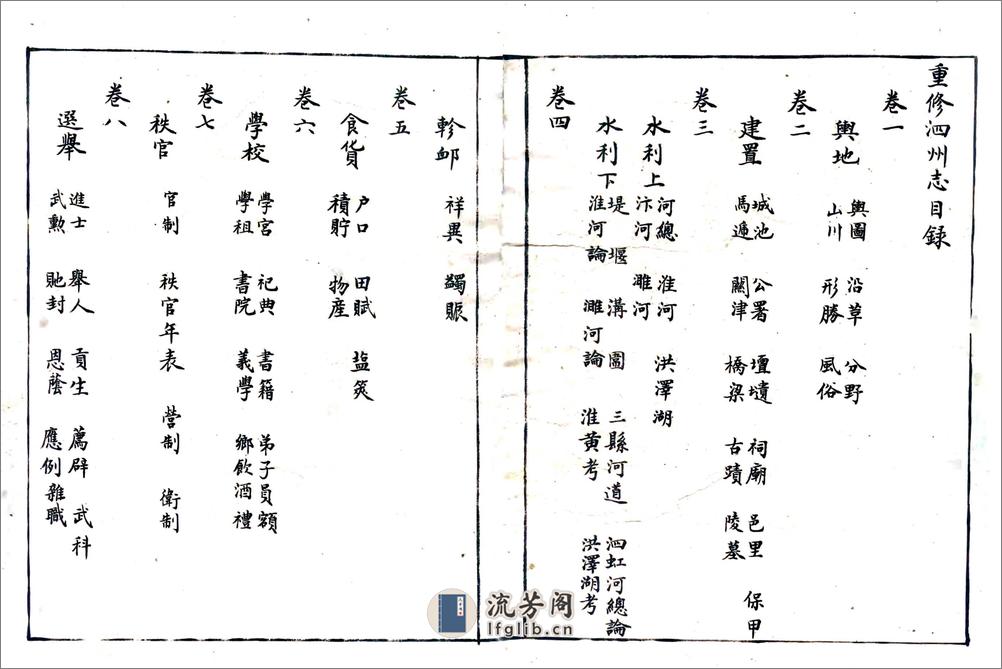 重修泗州志目錄
卷一
輿地 輿圖 沿革 分野
山川 形勝 風俗
卷二
建置 城池 公署 壇壝 祠廟 邑里 保甲
馬逓 關津 橋梁 古蹟 陵墓
卷三
水利上 河總 淮河 洪澤湖
汴河 濉河
水利下 堤堰 溝圖 三縣河道 泗虹河總論
淮河論 濉河論 淮黃考 洪澤湖考
卷四
軫䘏 祥異 蠲賑
卷五
食貨 户口 田賦 塩筴
積貯 物産
卷六
學校 學宮 祀典 書籍 弟子員額
學祖 書院 義學 鄉飲酒禮
卷七
秩官 官制 秩官年表 營制 衛制
卷八
選舉 進士 舉人 貢生 薦辟 武科
武勲 貤封 恩蔭 應例雜職
流芳阁
lfglib.cn